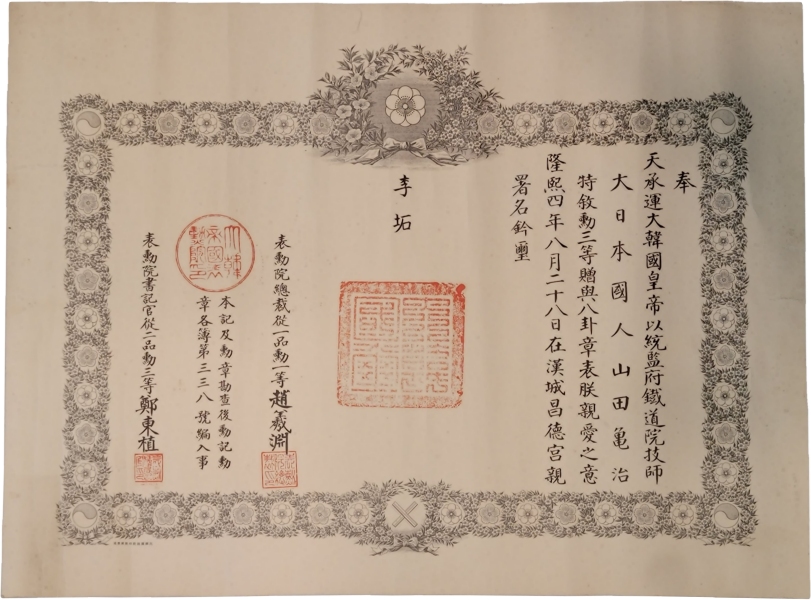 奉
天承運大韓國皇帝以統監府鐵道院技師
大日本國人山田亀治
特敘勳三等贈與八卦章表朕親愛之意
隆熙四年八月二十八日在漢城昌德宮親
署名鈐璽
李坧
表勳院總裁從一品勳一等趙羲淵
本記及勳章勘查後勳記勳
章各簿第三三八號編入事
表勳院書記官從二品勳三等鄭東植